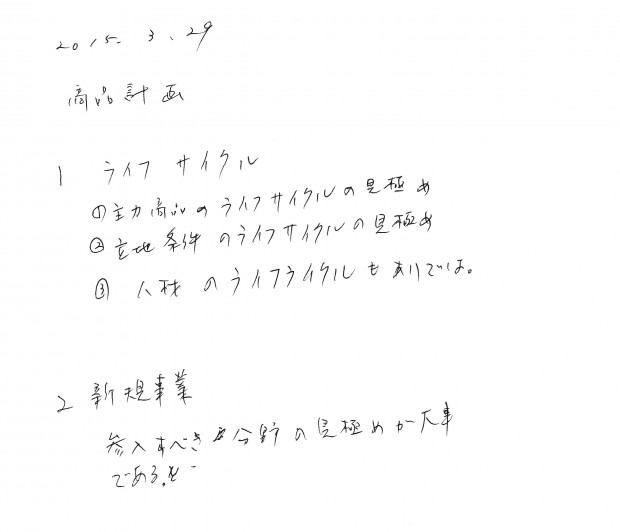 2015. 3. 29
商品計画
1 ライフサイクル
①主力商品のライフサイクルの見極め
②立地条件のライフサイクルの見極め
③ 人材のライフライクルもありでは。
2 新規事業
参入すべき 分野の見極めが大事
である。